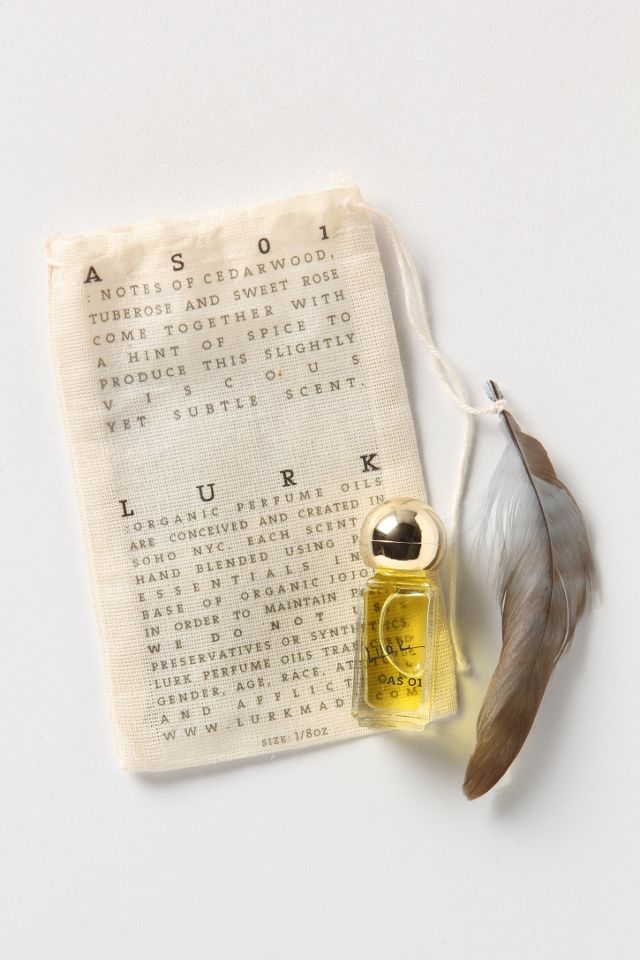 A S 0 1
: NOTES OF CEDARWOOD,
TUBEROSE AND SWEET ROSE
COME TOGETHER WITH
A HINT OF SPICE TO
PRODUCE THIS SLIGHTLY
VISCOUS
YET SUBTLE SCENT.
LURK
:ORGANIC PERFUME OILS
ARE CONCEIVED AND CREATED IN
SOHO NYC. EACH SCENT
HAND BLENDED USING
ESSENTIALS IN
BASE OF ORGANIC
IN ORDER TO MAINTAIN
WE DO NOT
PRESERVATIVES OR
LURK PERFUME OILS
GENDER, AGE, RACE,
AND
WWW.
SIZE: 1/8OZ
AS 01